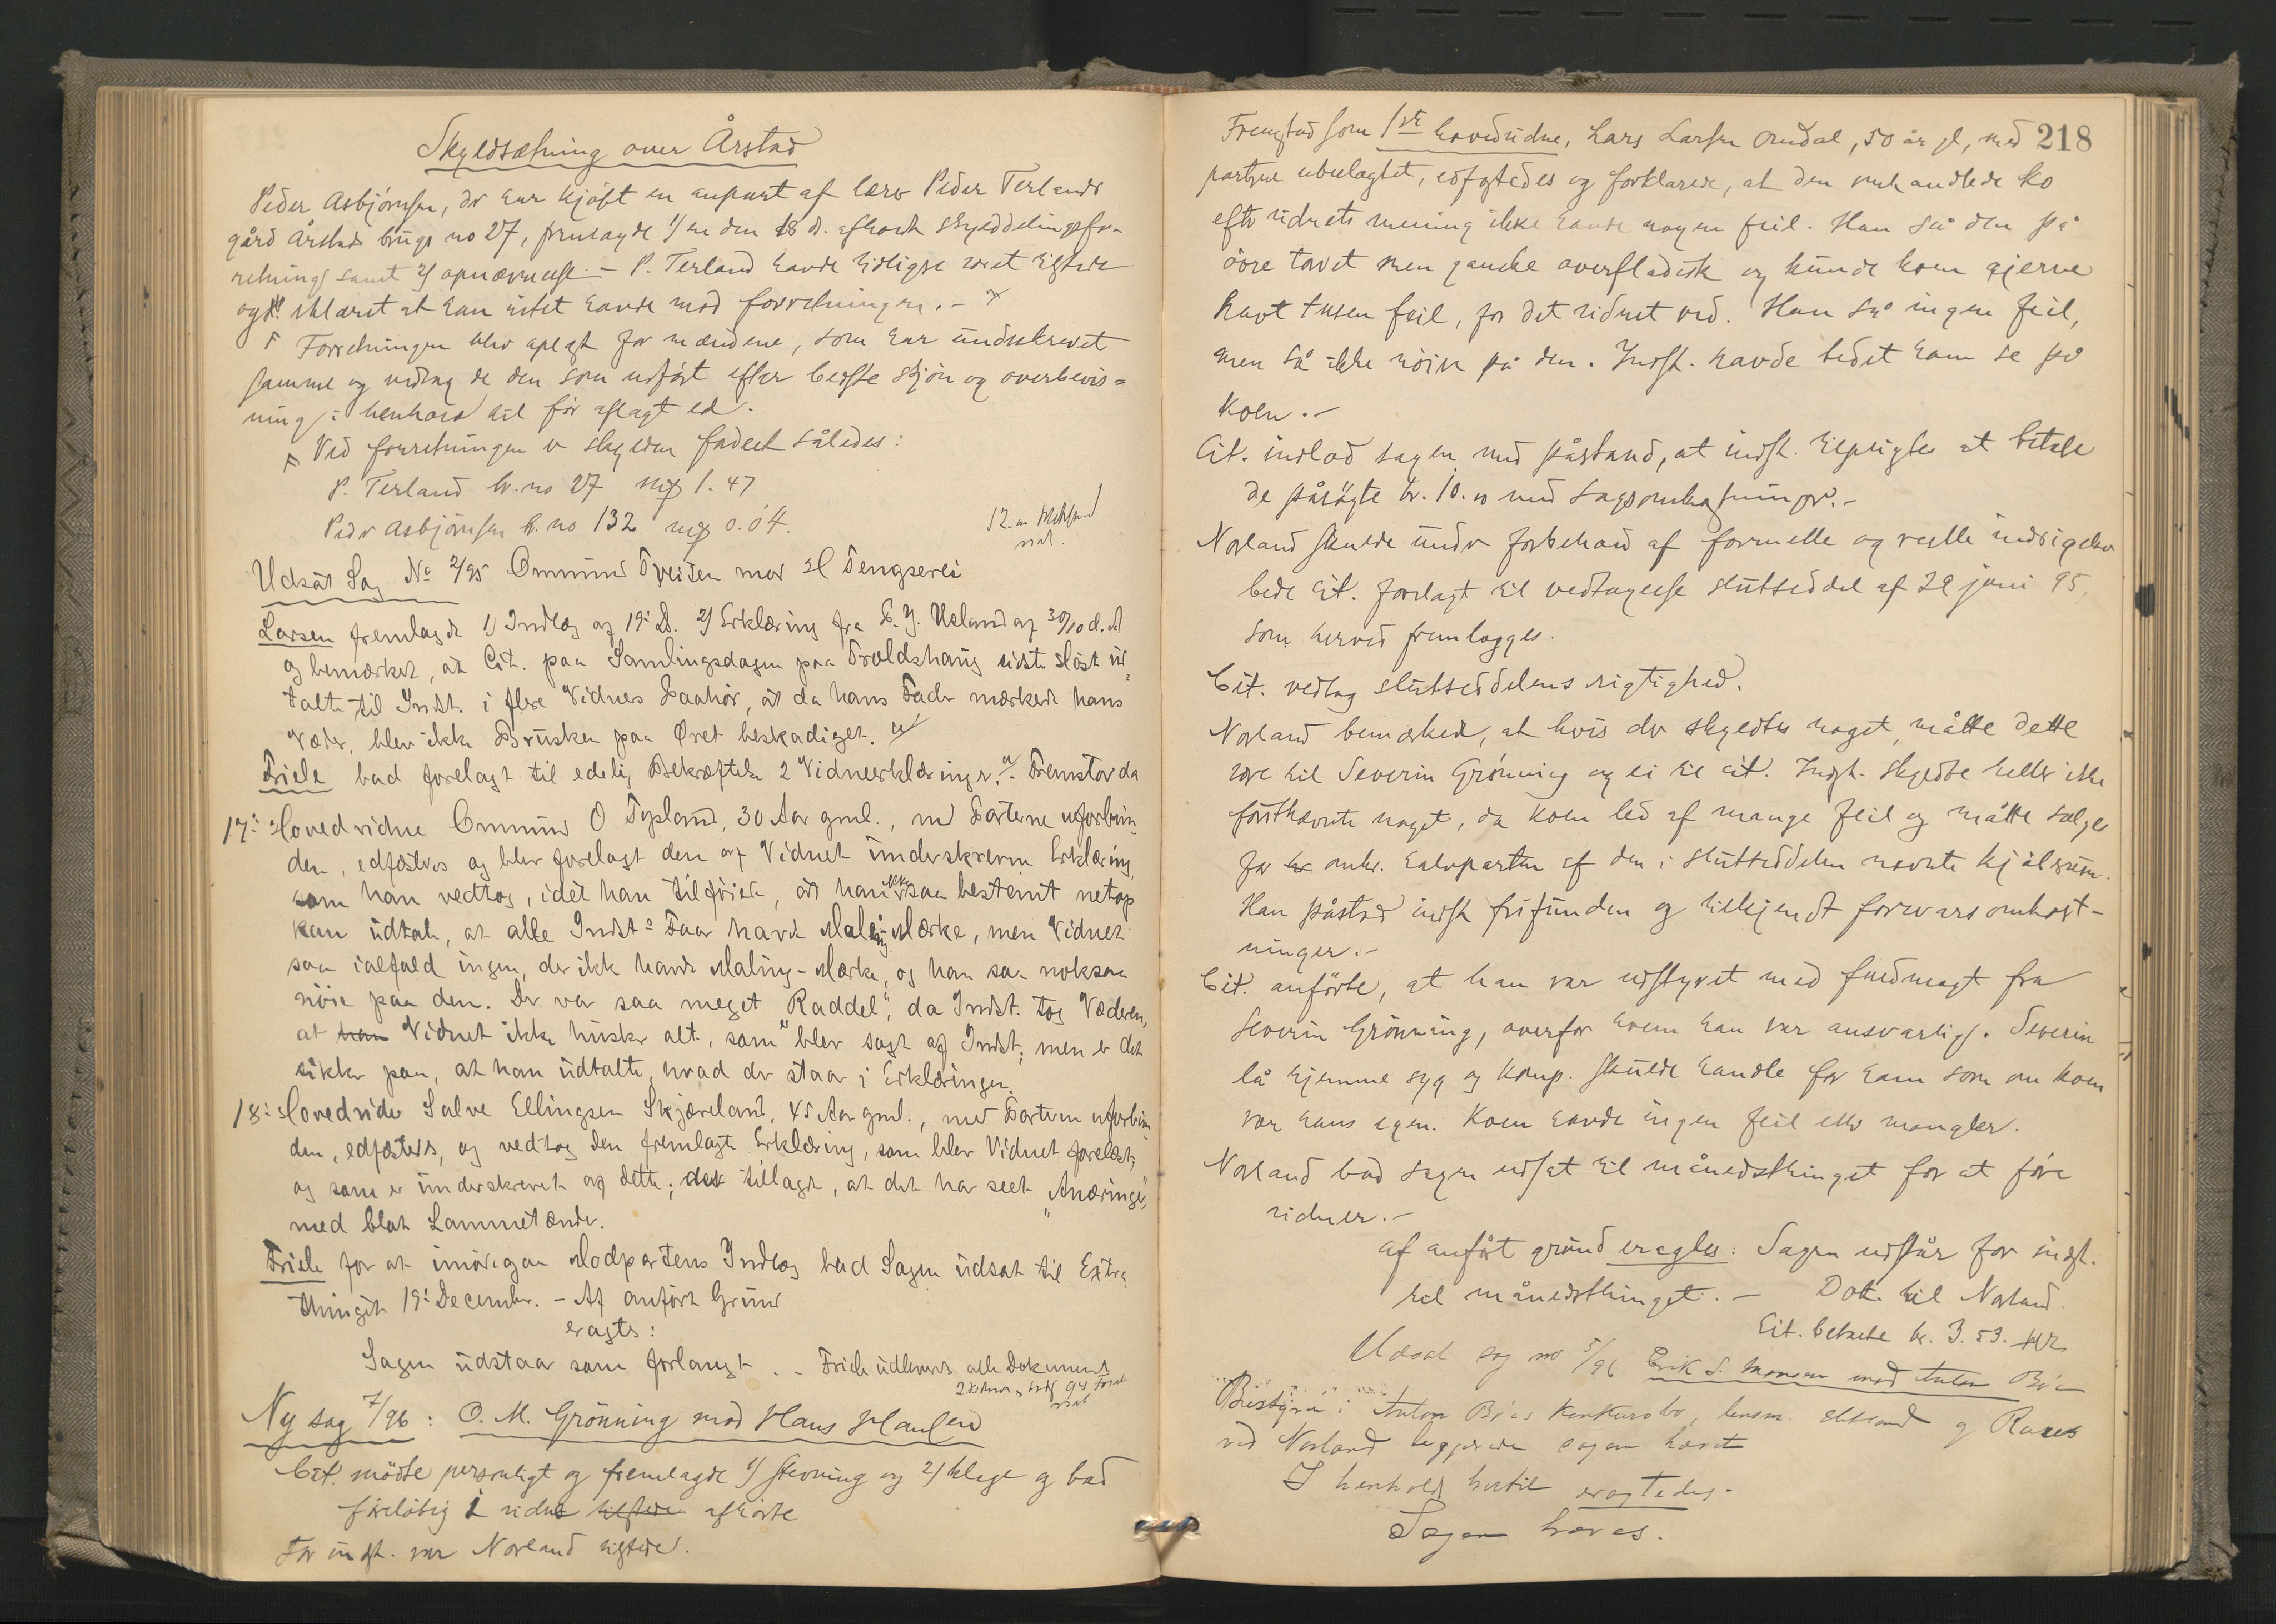 Skyldsætning over Årstad
Peder Asbjörnsen, der har kjöbt en anpart af lærer Peder Terlands
gård Årstads brugs no 27, fremlagde 1/ en den 18 d. afholdt skylddelingsfor-
retning samt 2/ opnævnelse. – P. Terland havde tidligere været tilstede
og erklæret at han intet havde mod forretningen. –
Forretningen blev oplæst for mændene, som har underskrevet
samme og vedtog de den som udfört efter bedste skjön og overbevis-
ning i henhold til för aflagt ed.
Ved forretningen er skylden fordelt således:
P. Terland br. no 27 mk 1.47
Peder Asbjörnsen b. no 132 mk 0.04.
12
Udsat Sag No 2/95 Ommund Tveiten mod H Tengsereid
Larsen fremlagde 1) Indlæg af 19' ds. 2) Erklæring fra E. Y. Ueland af 30/10 d. A
og bemærket, at Cit. paa Samlingsdagen paa Troldshaug sidste Höst ud-
talte til Indst. i flere Vidners Paahør, at da hans Fader mærkede hans
Væder, blev ikke Brusken paa Øret beskadiget.
Friele bad forelagt til edelig Bekræftelse 2 Vidneerklæringer. Fremstod da
17' Hovedvidne Ommund O Typland, 30 Aar gml., med Parterne uforbun-
den, edfæstedes og blev forelagt den af Vidnet underskrevne Erklæring,
som han vedtog, idet han tilføiede, at han ikke saa bestemt netop
kan udtale, at alle Indst's Faar havde Maling-Mærke, men Vidnet
saa ialfald ingen, der ikke havde Maling-Mærke, og han saa noksaa
nöie paa den. Der var saa meget "Raddel", da Indst. tog Væderen,
at han Vidnet ikke husker alt, som blev sagt af Indst; men er det
sikker paa, at han udtalte, hvad der staar i Erklæringen.
18' Hovedvidne Salve Ellingsen Skjæveland, 45 Aar gml., med Parterne uforbun-
den, edfæstedes, og vedtog den fremlagte Erklæring, som blev Vidnet forelæst,
og som er underskrevet af dette; det tillagde, at det har seet "Anæringer",
med blot Lammetænder.
Friele for at imødegaa Modpartens Indlæg bad Sagen udsat til Extra-
thinget 19' December. – Af anført Grund
eragtes:
Sagen udstaar som forlangt. – Friele udleveres alle Dokumenter
Ny sag 7/96: O. M. Grönning mod Hans Haulid
Cit. mödte personligt og fremlagde 1/ stevning og 2/ klage og bad
foreløbig 1 vidne tilstede afhörte
For indst. var Norland tilstede.
218
Fremstod som 1ste hovedvidne, Lars Larsen Omdal, 50 år gl, med
partene ubeslægtet, edfæstedes og forklarede, at den omhandlede ko
efter vidnets mening ikke havde nogen feil. Han så den på
övre torvet men ganske overfladisk og kunde koen gjerne
havt tusen feil, for det vidnet ved. Han så ingen feil,
men så ikke nöie på den. Indst. havde bedet ham se på
koen. –
Cit. indlod sagen med påstand, at indst. tilpligtes at betale
de påsögte kr. 10.00 med sagsomkostninger. –
Norland skulde under forbehold af formelle og reelle indsigelser
bede Cit. forelagt til vedtagelse slutseddel af 29 juni 95,
som herved fremlægges.
Cit. vedtog slutseddelens rigtighed.
Norland bemærkede, at hvis der skyldtes noget, måtte dette
være til Severin Grönning og ei til cit. Indst. skyldte heller ikke
förstnævnte noget, da koen led af mange feil og måtte sælges
for kr omkr. halvparten af den i slutseddelen nævnte kjöbesum.
Han påstod indst frifunden og tilkjendt forsvarsomkost-
ninger. –
Cit. anförte, at han var udstyret med fuldmagt fra
Severin Grönning, overfor hvem han var ansvarlig. Severin
lå hjemme syg og komp. skulde handle for ham som om koen
var hans egen. Koen havde ingen feil eller mangler.
Norland bad sagen udsat til månedsthinget for at före
vidner. –
af anfört grund eragtes: Sagen udstår for indst.
til månedsthinget. – Dok. til Norland.
Cit. betalte kr. 3.53.
Udsat sag no 5/96 Erik S. Monsen mod Anton Böe
Bestyren i Anton Böes Konkursbo, lensm. og
ved Norland begjærede sagen hævet
I henhold hertil eragtedes.
Sagen hæves.